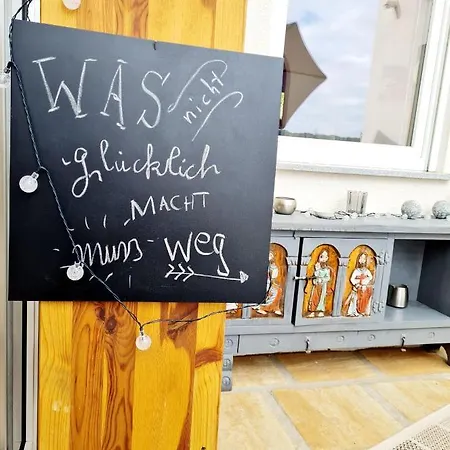 WAS nicht
glücklich
MACHT
muss weg